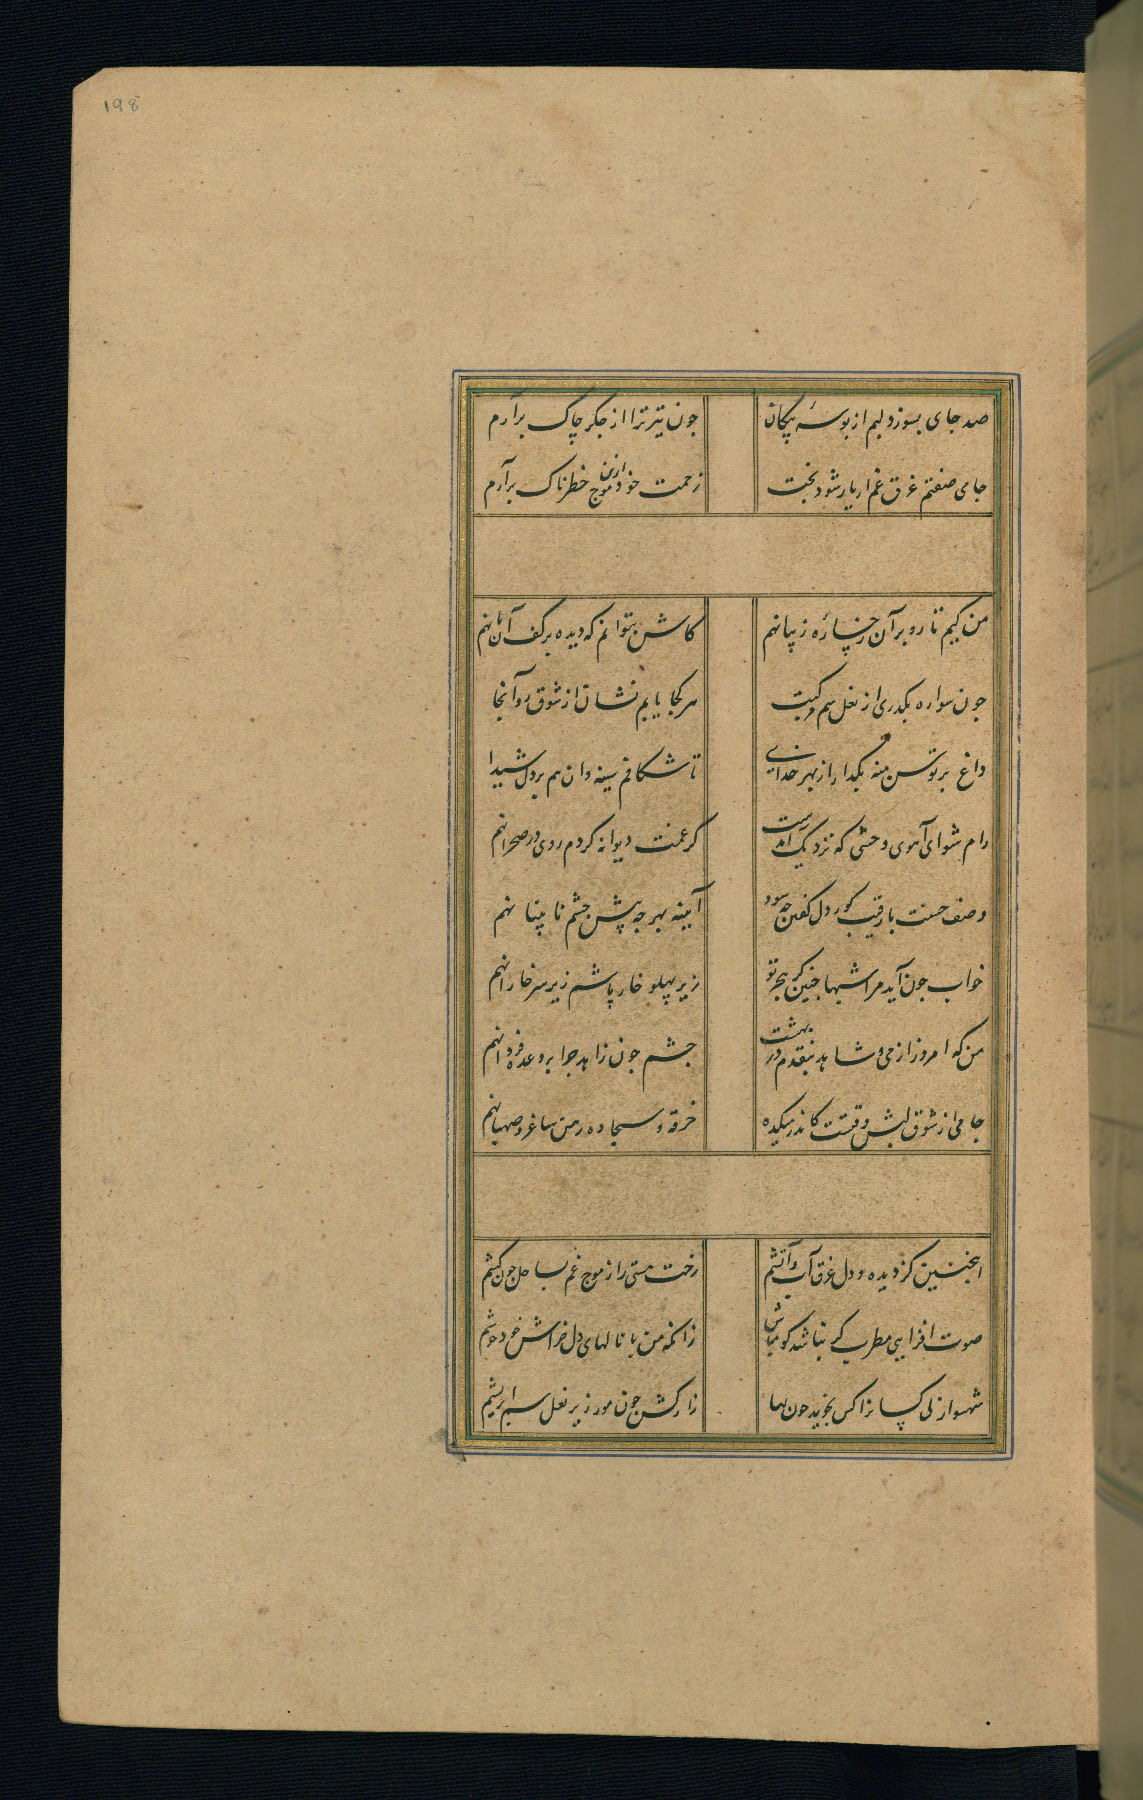 198
صد جای بسوزد لبم از بوسهٔ پیکان
چون تیر ترا از جگر چاک برآرم
جامی صفتم غرق غم ار یار شود بخت
زحمت خود ازین موج خطرناک برآرم
من کیم تا رو بر آن رخسارهٔ زیبا نهم
کاش بتوانم که دیده بر کف آن پا نهم
چون سواره بگذری از نعل سم مرکبت
هر کجا یابم نشان از شوق رو آنجا
داغ بر توسن منه بگذار از بهر خدای
تا شکافم سینه وان هم بر دل شیدا
رام شو ای آهوی وحشی که نزدیک آمدست
کز غمت دیوانه گردم روی در صحرا نهم
وصف حسنت با رقیب کور دل گفتن چه سود
آیینه بهر چه پیش چشم نابینا نهم
خواب چون آید مرا شبها چنین کز هجر تو
زیر پهلو خار پاشم زیر سر خارا نهم
من که امروز از می و شاهد بنقدم در بهشت
چشم چون زاهد چرا بر وعدهٔ فردا نهم
جامی از شوق لبش وقتست کاندر میکده
خرقه و سجاده رهن ساغر و صهبا نهم
اینچنین کز دیده و دل غرق آب و آتشم
رخت هستی را ز موج غم بساحل چون کشم
صوت افزایی مطرب گر نباشد گو مباش
زانکه من با نالهای دل خراش خود خوشم
شهسوار
زار کشتن چون مور زیر نعل سم ابرشم